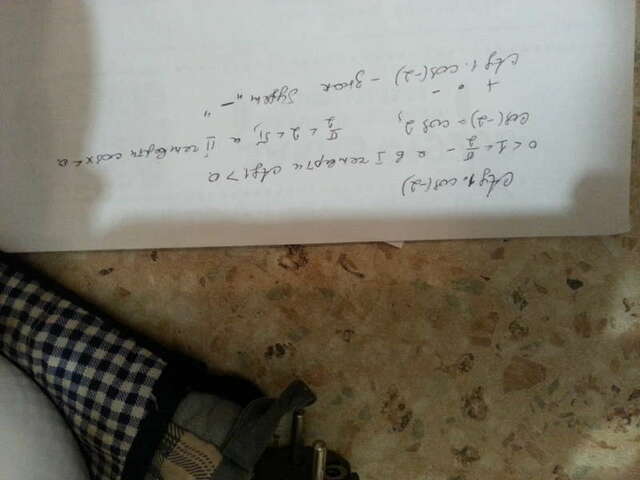 ctg1·cos(-2)
0 < 1 < π/2 - в I четверти ctg1 > 0
cos(-2) = cos2, π/2 < 2 < π, а II четверти cosx < 0
+ · -
ctg1·cos(-2) - знак будет "-"